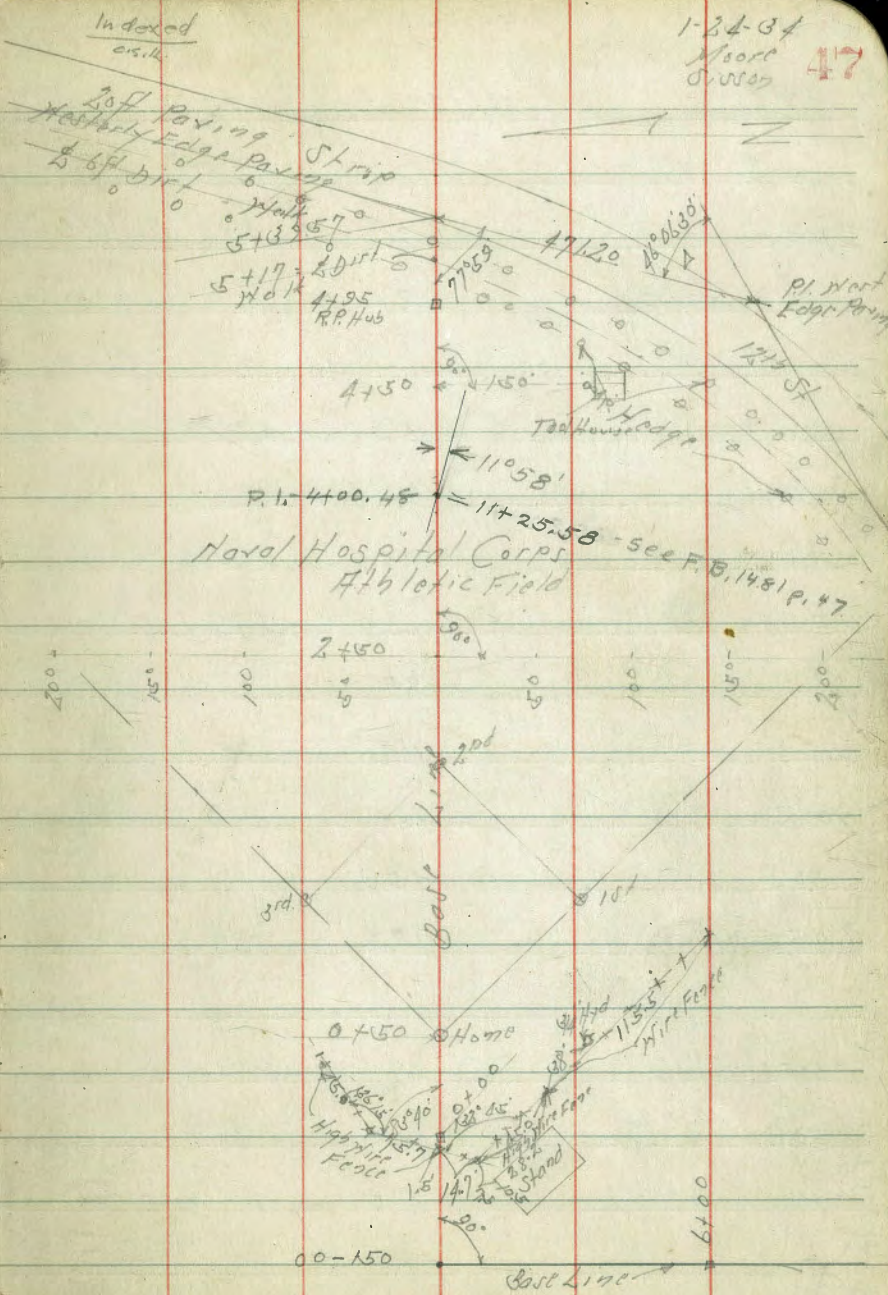 Indexed
1-24-34
Moore
Sisson
47
20ft Paving
Strip
Westerly Edge Paving
℄ 6ft Dirt
Walk
5+39.57
5+17 = ℄ Dirt
Walk
4+95
R.P. Hub
77°59
471.20
46°06'30"
Δ
P.I. West
Edge Paving
12th St
90°
4+50
150'
Hedge
Tool House
11°58'
P.I.-4+00.48
= 11+25.58 - see F.B. 1481 P. 47
Naval Hospital Corps
Athletic Field
90°
2+50
200
150
100
50
50
100
150
200
2nd
Base Line
3rd
1st
0+50
Home
0+00
Hyd
38'
115.5'
Wire Fence
High Wire
Fence
High Wire Fence
28.2
Stand
1.5
14.7
90°
00-150
6+00
Base Line